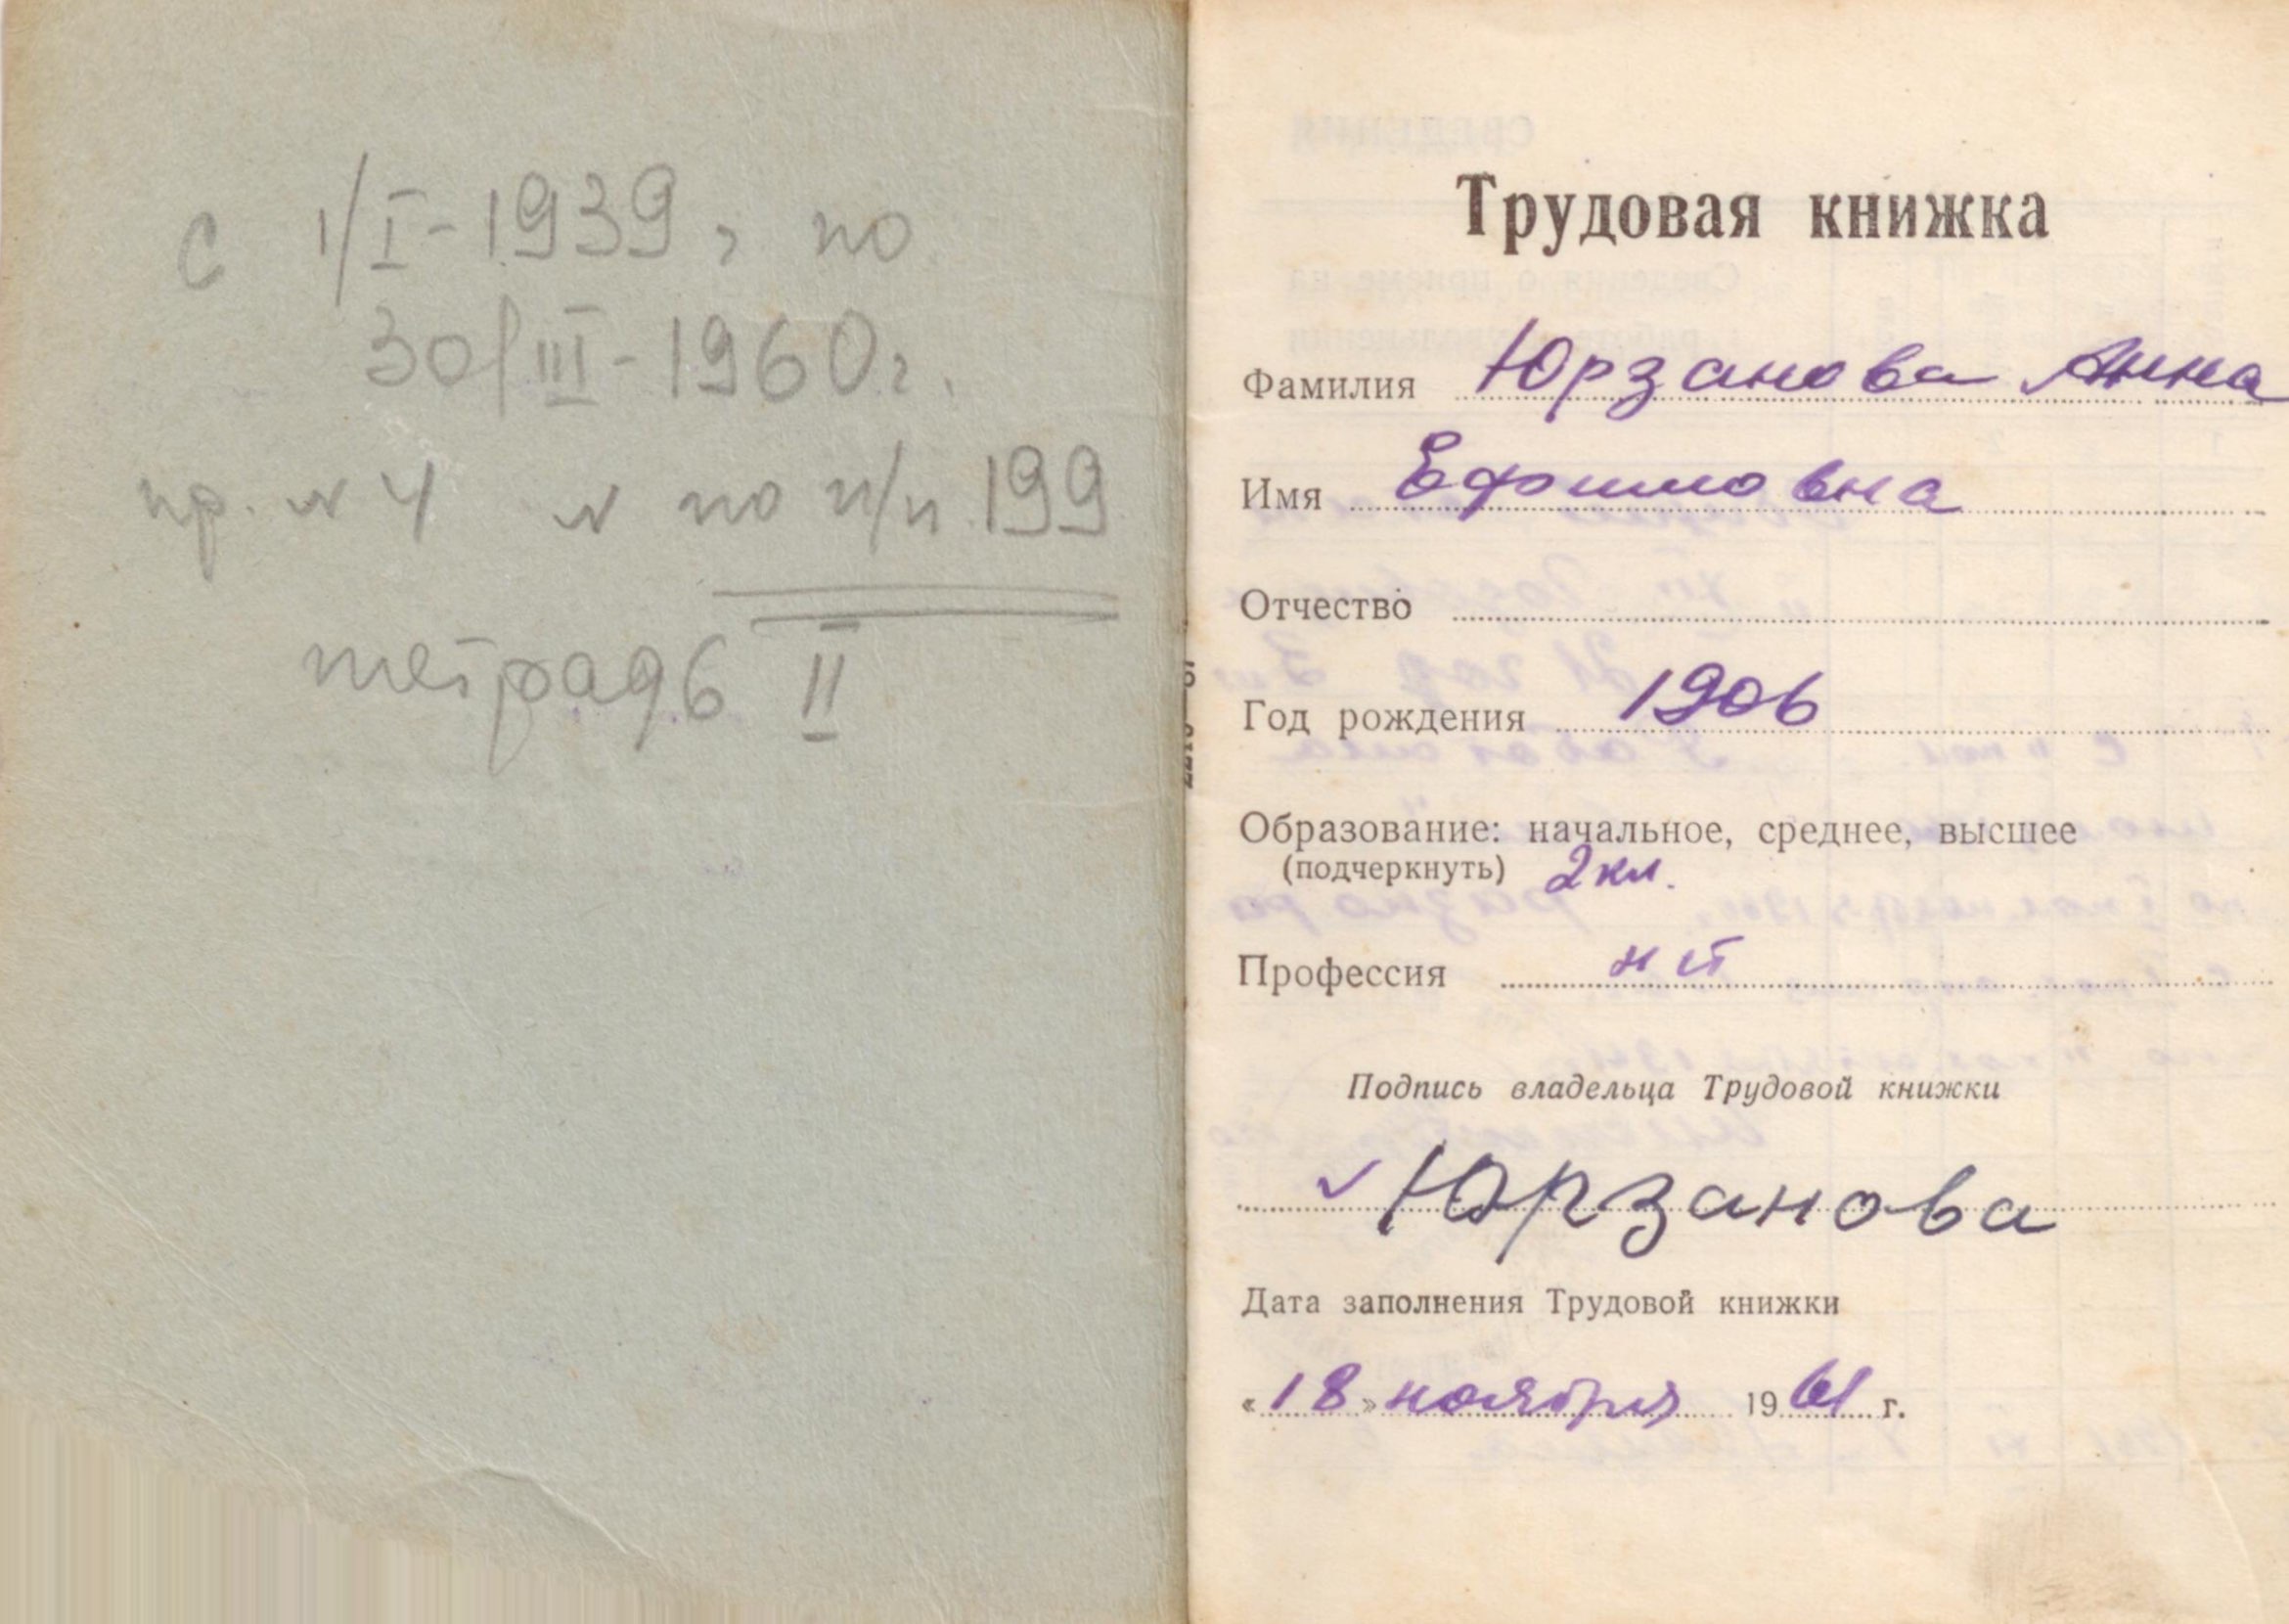 с 1/I-1939г по
30/III-1960г.
пр. N 4 N по п/п 199
тетрадь II
Трудовая книжка
Фамилия Юрзанова Анна
Имя Ефимовна
Отчество
Год рождения 1906
Образование: начальное, среднее, высшее
(подчеркнуть) 2 кл.
Профессия нет
Подпись владельца Трудовой книжки
✓ Юрзанова
Дата заполнения Трудовой книжки
«18» ноября 1961 г.